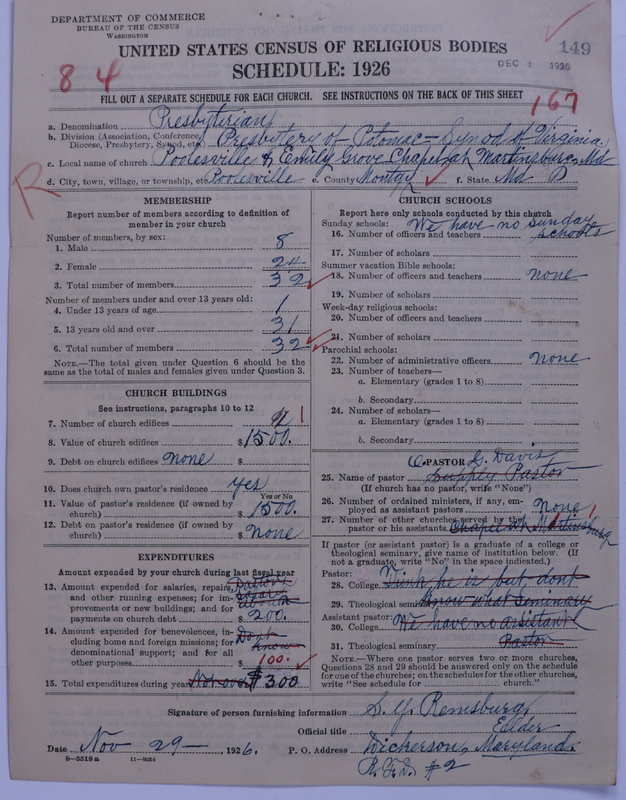 DEPARTMENT OF COMMERCE
BUREAU OF THE CENSUS
WASHINGTON
149
UNITED STATES CENSUS OF RELIGIOUS BODIES
DEC 1926
84
SCHEDULE: 1926
FILL OUT A SEPARATE SCHEDULE FOR EACH CHURCH. SEE INSTRUCTIONS ON THE BACK OF THIS SHEET
167
a. Denomination Presbyterian
b. Division (Association, Conference, Diocese, Presbytery, Synod, etc.) Presbytery of Potomac = Synod of Virginia
c. Local name of church Poolesville & Emily Grove Chapel at Martinsburg, Md
d. City, town, village, or township, etc. Poolesville e. County Montgy f. State Md
R
MEMBERSHIP
Report number of members according to definition of
member in your church
Number of members, by sex:
1. Male 8
2. Female 24
3. Total number of members 32
Number of members under and over 13 years old:
4. Under 13 years of age 1
5. 13 years old and over 31
6. Total number of members 32
NOTE.—The total given under Question 6 should be the
same as the total of males and females given under Question 3.
CHURCH BUILDINGS
See instructions, paragraphs 10 to 12
7. Number of church edifices 1
8. Value of church edifices $1500.
9. Debt on church edifices none $
10. Does church own pastor's residence yes
Yes or No
11. Value of pastor's residence (if owned by
church) $1500.
12. Debt on pastor's residence (if owned by
church) $none
EXPENDITURES
Amount expended by your church during last fiscal year
13. Amount expended for salaries, repairs,
and other running expenses; for im-
provements or new buildings; and for
payments on church debt $200.
14. Amount expended for benevolences, in-
cluding home and foreign missions; for
denominational support; and for all
other purposes Dont know 100.
15. Total expenditures during year Not over $300
CHURCH SCHOOLS
Report here only schools conducted by this church
Sunday schools: We have no sunday
16. Number of officers and teachers schools
17. Number of scholars
Summer vacation Bible schools:
18. Number of officers and teachers none
19. Number of scholars
Week-day religious schools:
20. Number of officers and teachers
21. Number of scholars
Parochial schools:
22. Number of administrative officers none
23. Number of teachers—
a. Elementary (grades 1 to 8)
b. Secondary
24. Number of scholars—
a. Elementary (grades 1 to 8)
b. Secondary
PASTOR G. Davis
25. Name of pastor Supply Pastor
(If church has no pastor, write "None")
26. Number of ordained ministers, if any, em-
ployed as assistant pastors none
27. Number of other churches served by
pastor or his assistants Chapel at Martinsburg 1
If pastor (or assistant pastor) is a graduate of a college or
theological seminary, give name of institution below. (If
not a graduate, write "No" in the space indicated.)
Pastor:
28. College Think he is but dont
29. Theological seminary know what seminary
Assistant pastor:
30. College We have no assistant
31. Theological seminary Pastor
NOTE.—Where one pastor serves two or more churches,
Questions 28 and 29 should be answered only on the schedule
for one of the churches; on the schedules for the other churches,
write "See schedule for church."
Signature of person furnishing information S. Y. Remsburg
Official title Elder
Date Nov 29— , 1926. P. O. Address Dickerson, Maryland.
8—5518 a 11—9054
R.F.D. #2